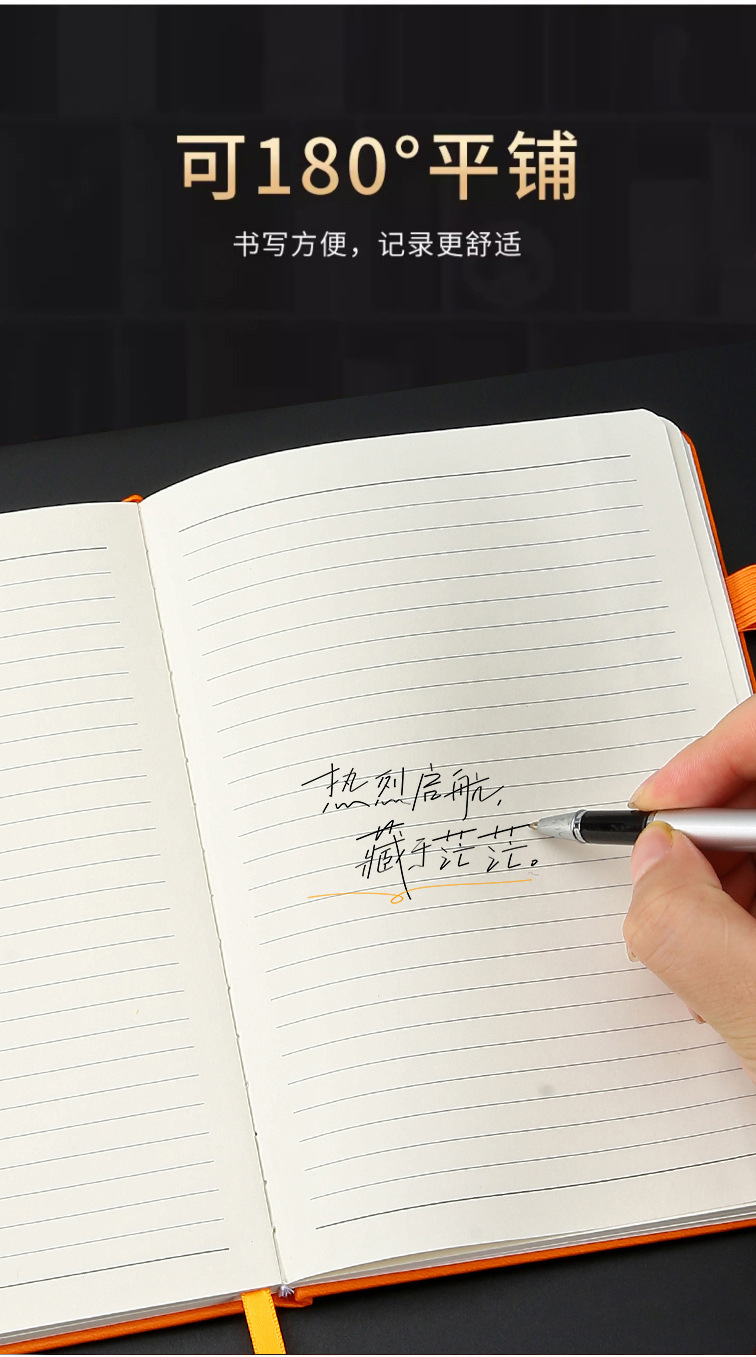 可180°平铺
书写方便，记录更舒适
热烈启航，
藏于茫茫。